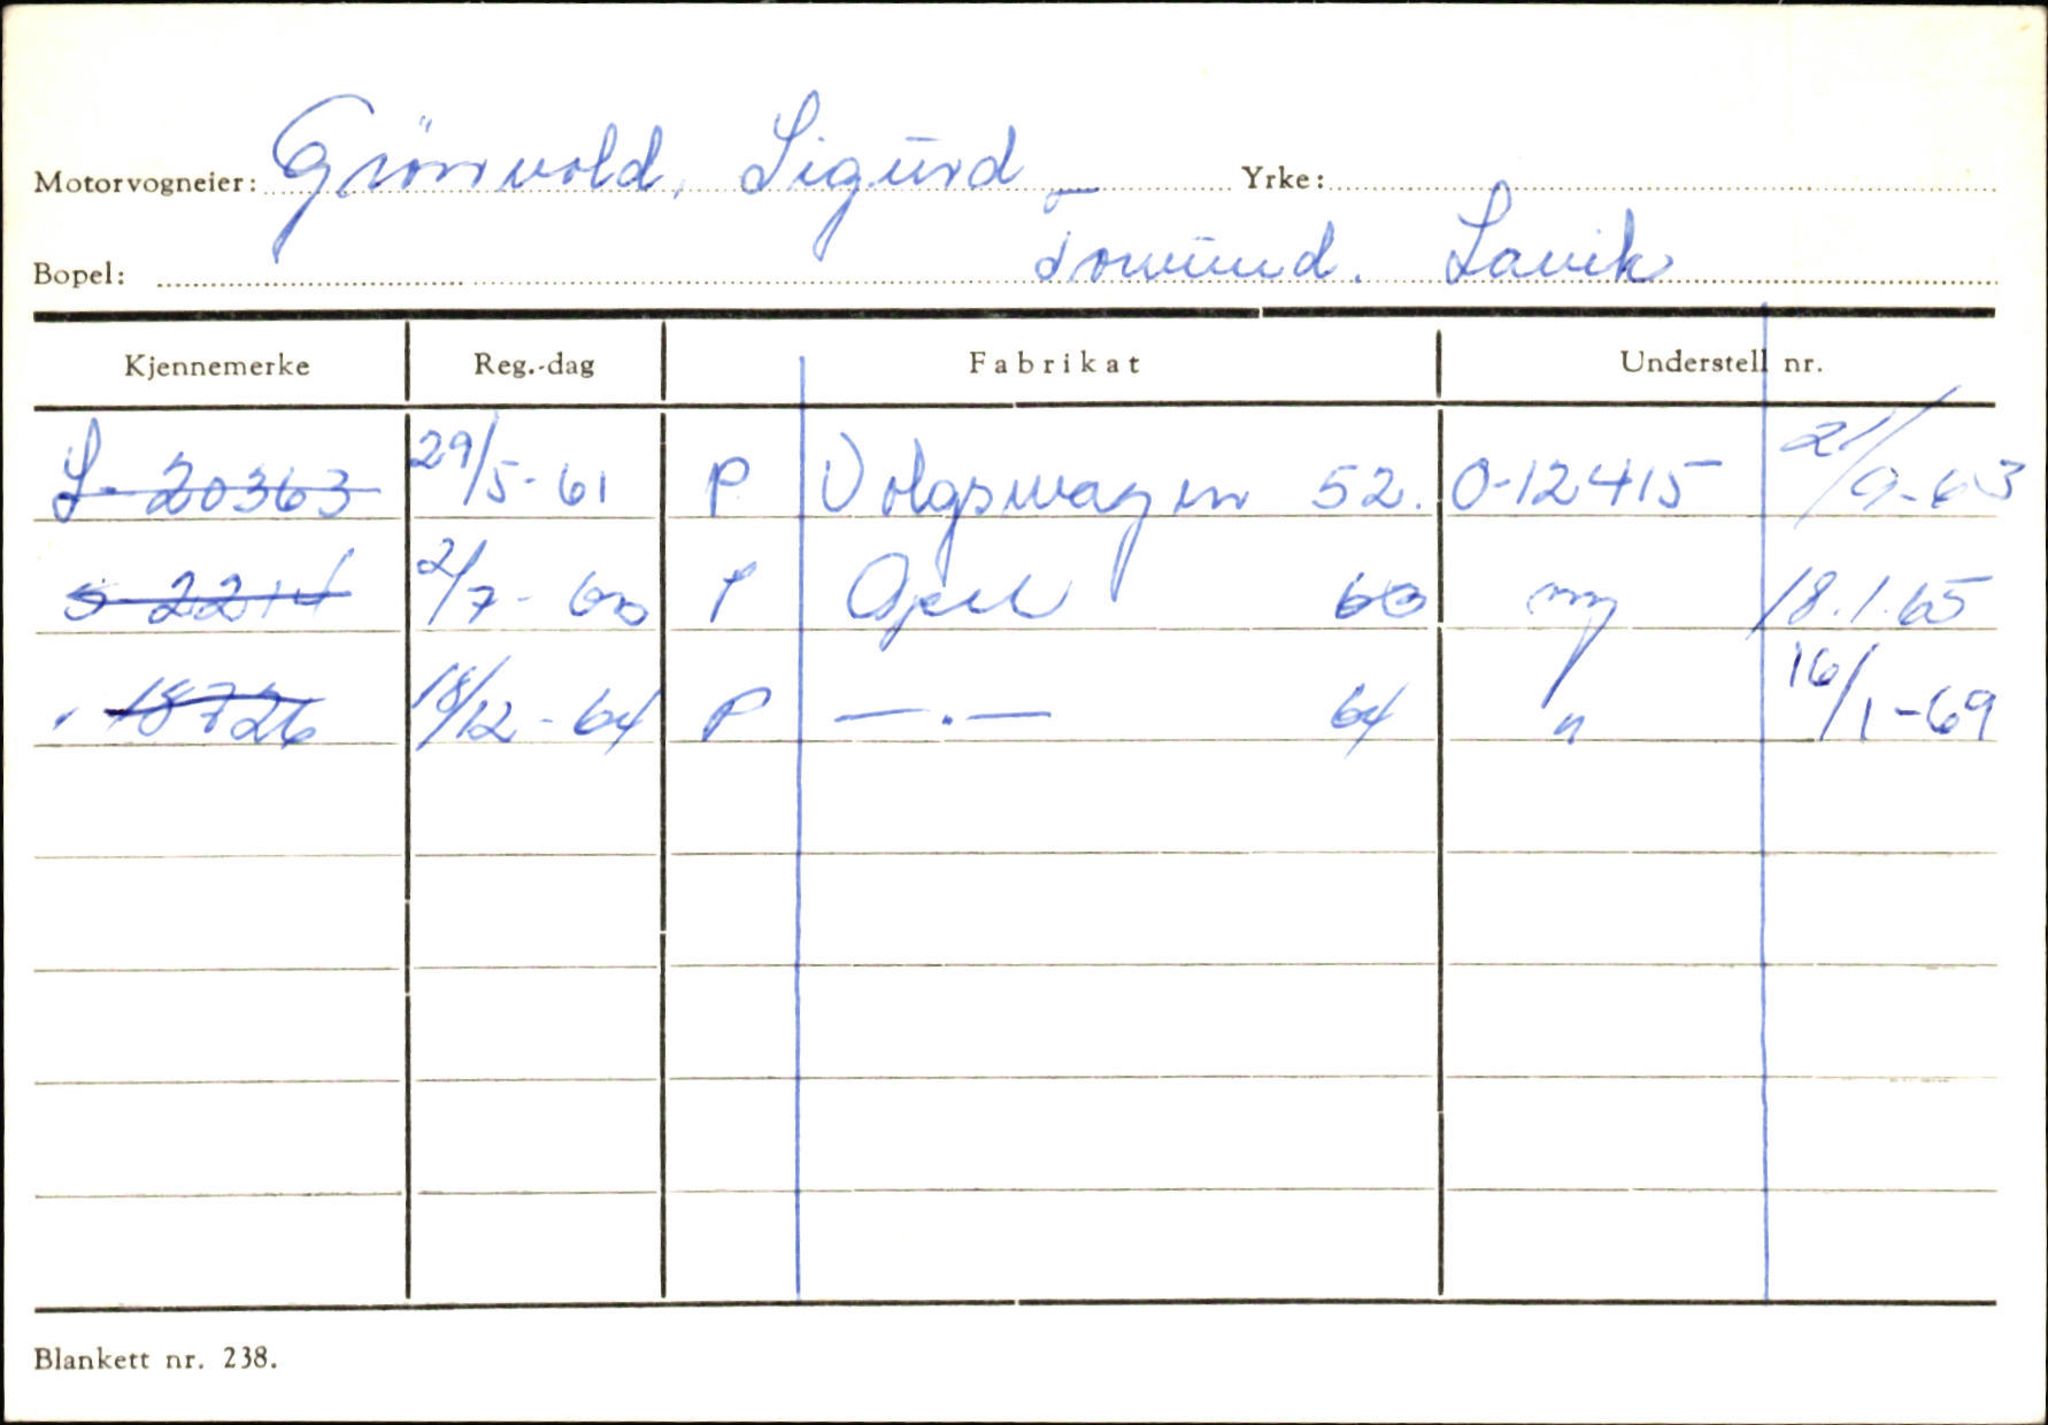 Motorvogneier: Grönvold, Sigurd Yrke:
Bopel: Lavik
Kjennemerke Reg.-dag Fabrikat Understell nr.
S- 20363 29/5-61 P Volgswagen 52. 0-12415 21/9-63
S 2214 2/7-63 P Opel 63 ny 18.1.65
" 18726 18/12-64 P —.— 64 " 16/1-69
Blankett nr. 238.